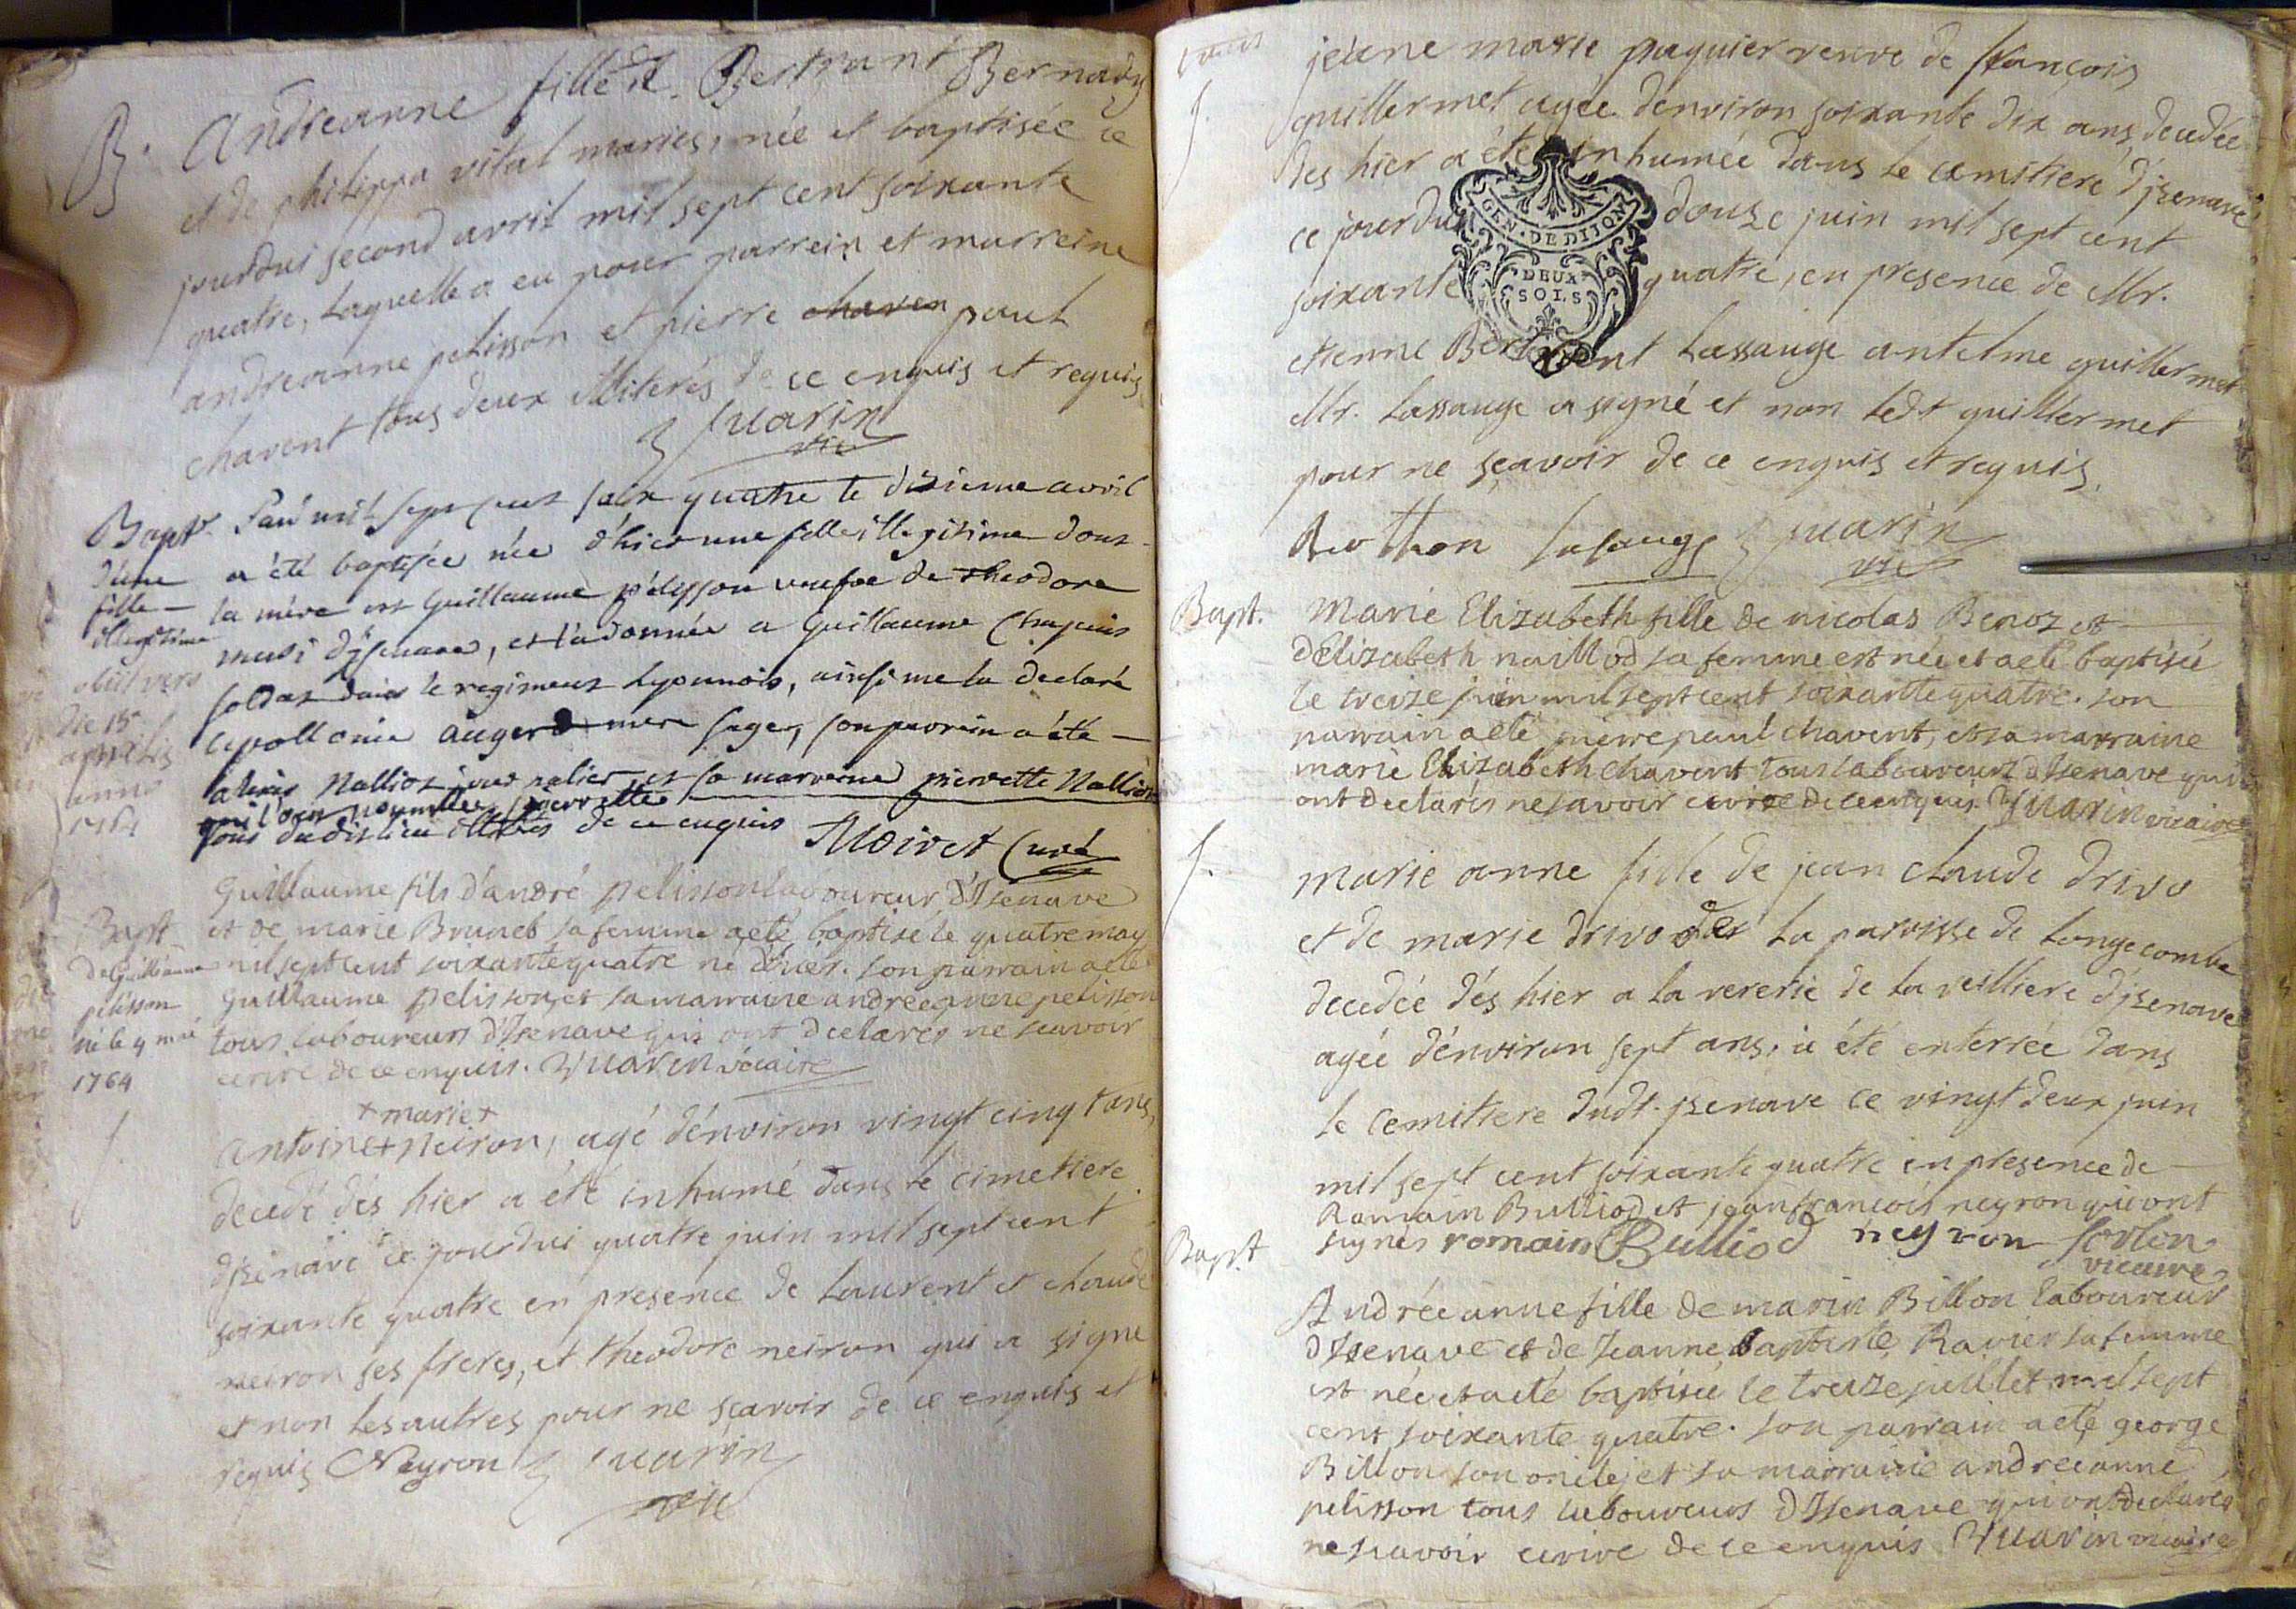 B. Andreanne fille de Bertrant Bernady
et de philippa vital maries, née et baptisée ce
jourdui second avril mil sept cent soixante
quatre, laquelle a eu pour parrein et marreine
andreanne pelisson et pierre paul
chavent tous deux illiterés de ce enquis et requis
Juarin
vic
Bapt. L'an mil sept cent soix quatre le dixieme avril
d'une a été baptisée née d'hier une fille illegitime dont
fille la mère est Guillaume pelysson veufve de theodore
illegitime d'jsenave, et l'a donnée a Guillaume Chapuis
obiit vero soldat dans le regiment Lyonnois, ainsi me la declaré
die 15a appollonie auger mere sage, son parrein a été
aprilis alexis Nallioz et sa marreine pierrette Nallioz
anno qui l'ont nommée pierrette
1764 tous dudit lieu illiterés de ce enquis Moiret Curé
Guillaume fils d'andré pelisson laboureur d'Isenave
Bapt et de marie Brunet sa femme a eté baptisé le quatre may
de Guillaume mil sept cent soixante quatre né d'hier. son parrain a eté
pelisson Guillaume pelisson, et sa marraine andreeanne pelisson
né le 4 mai tous laboureurs d'Isenave qui ont declarés ne scavoir
1764 ecrire de ce enquis. Juarin vicaire
+ marie +
antoine + neiron, agé d'environ vingt cinq ans,
decedé dés hier a été inhumé dans le cimetiere
d'jsenave ce jourdui quatre juin mil sept cent
soixante quatre en presence de laurent et claude
neiron ses freres, et theodore neiron qui a signé
et non les autres pour ne sçavoir de ce enquis et
requis Neyron Juarin
vic
jeanne marie paquier veuve de françois
guillermet agée d'environ soixante dix ans decedée
des hier a été inhumée dans le cemitiere d'jsenave
ce jourdui douze juin mil sept cent
GEN. DE DIJON
DEUX
SOLS
soixante quatre, en presence de Mr.
etienne Lassauge antelme guillermet
Mr. Lassauge a signé et non ledt guillermet
pour ne sçavoir de ce enquis et requis.
Berthon Lasauge Juarin
vic
Bapt. Marie Elizabeth fille de nicolas Benoz et
d'Elizabeth naillod sa femme est née et a eté baptisée
le treize juin mil sept cent soixante quatre. son
parrain a eté pierre paul chavent, et sa marraine
marie Elizabeth chavent tous laboureurs d'Isenave qui
ont declarés ne savoir ecrire de ce enquis. Juarin vicaire
marie anne fille de jean claude drivo
et de marie drivo de la paroisse de Longecombe
decedée dés hier a la vererie de la veilliere d'jsenave
agée d'environ sept ans, a été enterrée dans
le cemitiere dudt. jsenave ce vingt deux juin
mil sept cent soixante quatre en presence de
Romain Bulliod et jean françois neyron qui ont
signés romain Bulliod neyron
Bapt vicaire
Andréeanne fille de marin Billon laboureur
d'Isenave et de Jeanne baptiste Ravier sa femme
est née et a eté baptisée le treize juillet mil sept
cent soixante quatre. son parrain a eté george
Billon son oncle, et sa marraine andreeanne
pelisson tous laboureurs d'Isenave qui ont declarés
ne scavoir ecrire de ce enquis Juarin vicaire